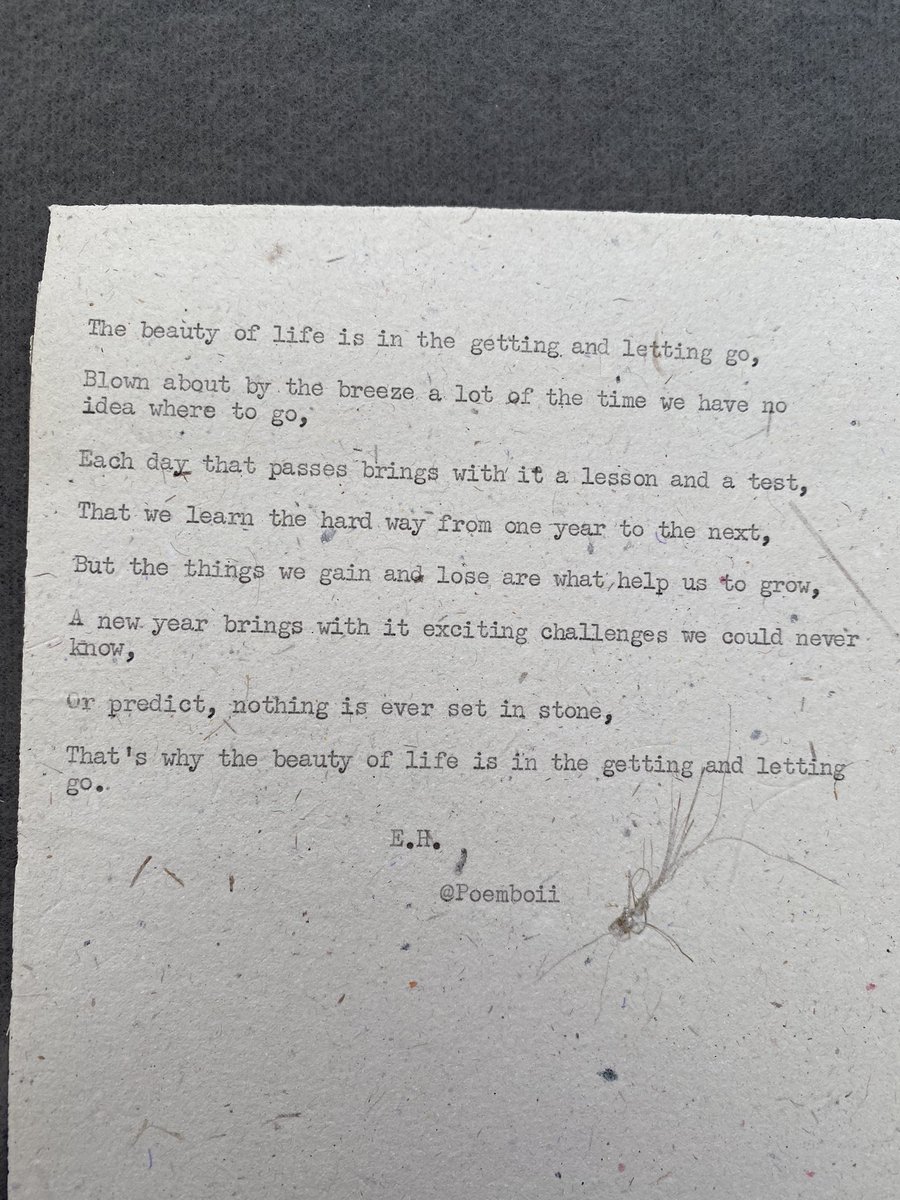 The beauty of life is in the getting and letting go,
Blown about by the breeze a lot of the time we have no
idea where to go,
Each day that passes brings with it a lesson and a test,
That we learn the hard way from one year to the next,
But the things we gain and lose are what help us to grow,
A new year brings with it exciting challenges we could never
know,
Or predict, nothing is ever set in stone,
That's why the beauty of life is in the getting and letting
go.
E.H.
@Poemboii